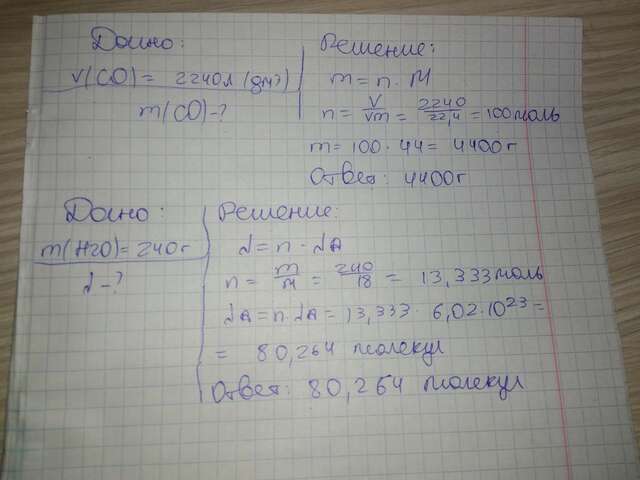 Дано:
V(CO) = 2240л (дм3)
m(CO)-?
Решение:
m = n · M
n = V/Vm = 2240/22,4 = 100моль
m = 100 · 44 = 4400г
Ответ: 4400г
Дано:
m(H2O) = 240г
N-?
Решение:
N = n · NA
n = m/M = 240/18 = 13,333моль
NA = n · NA = 13,333 · 6,02 · 10^23 =
= 80,264 молекул
Ответ: 80,264 молекул